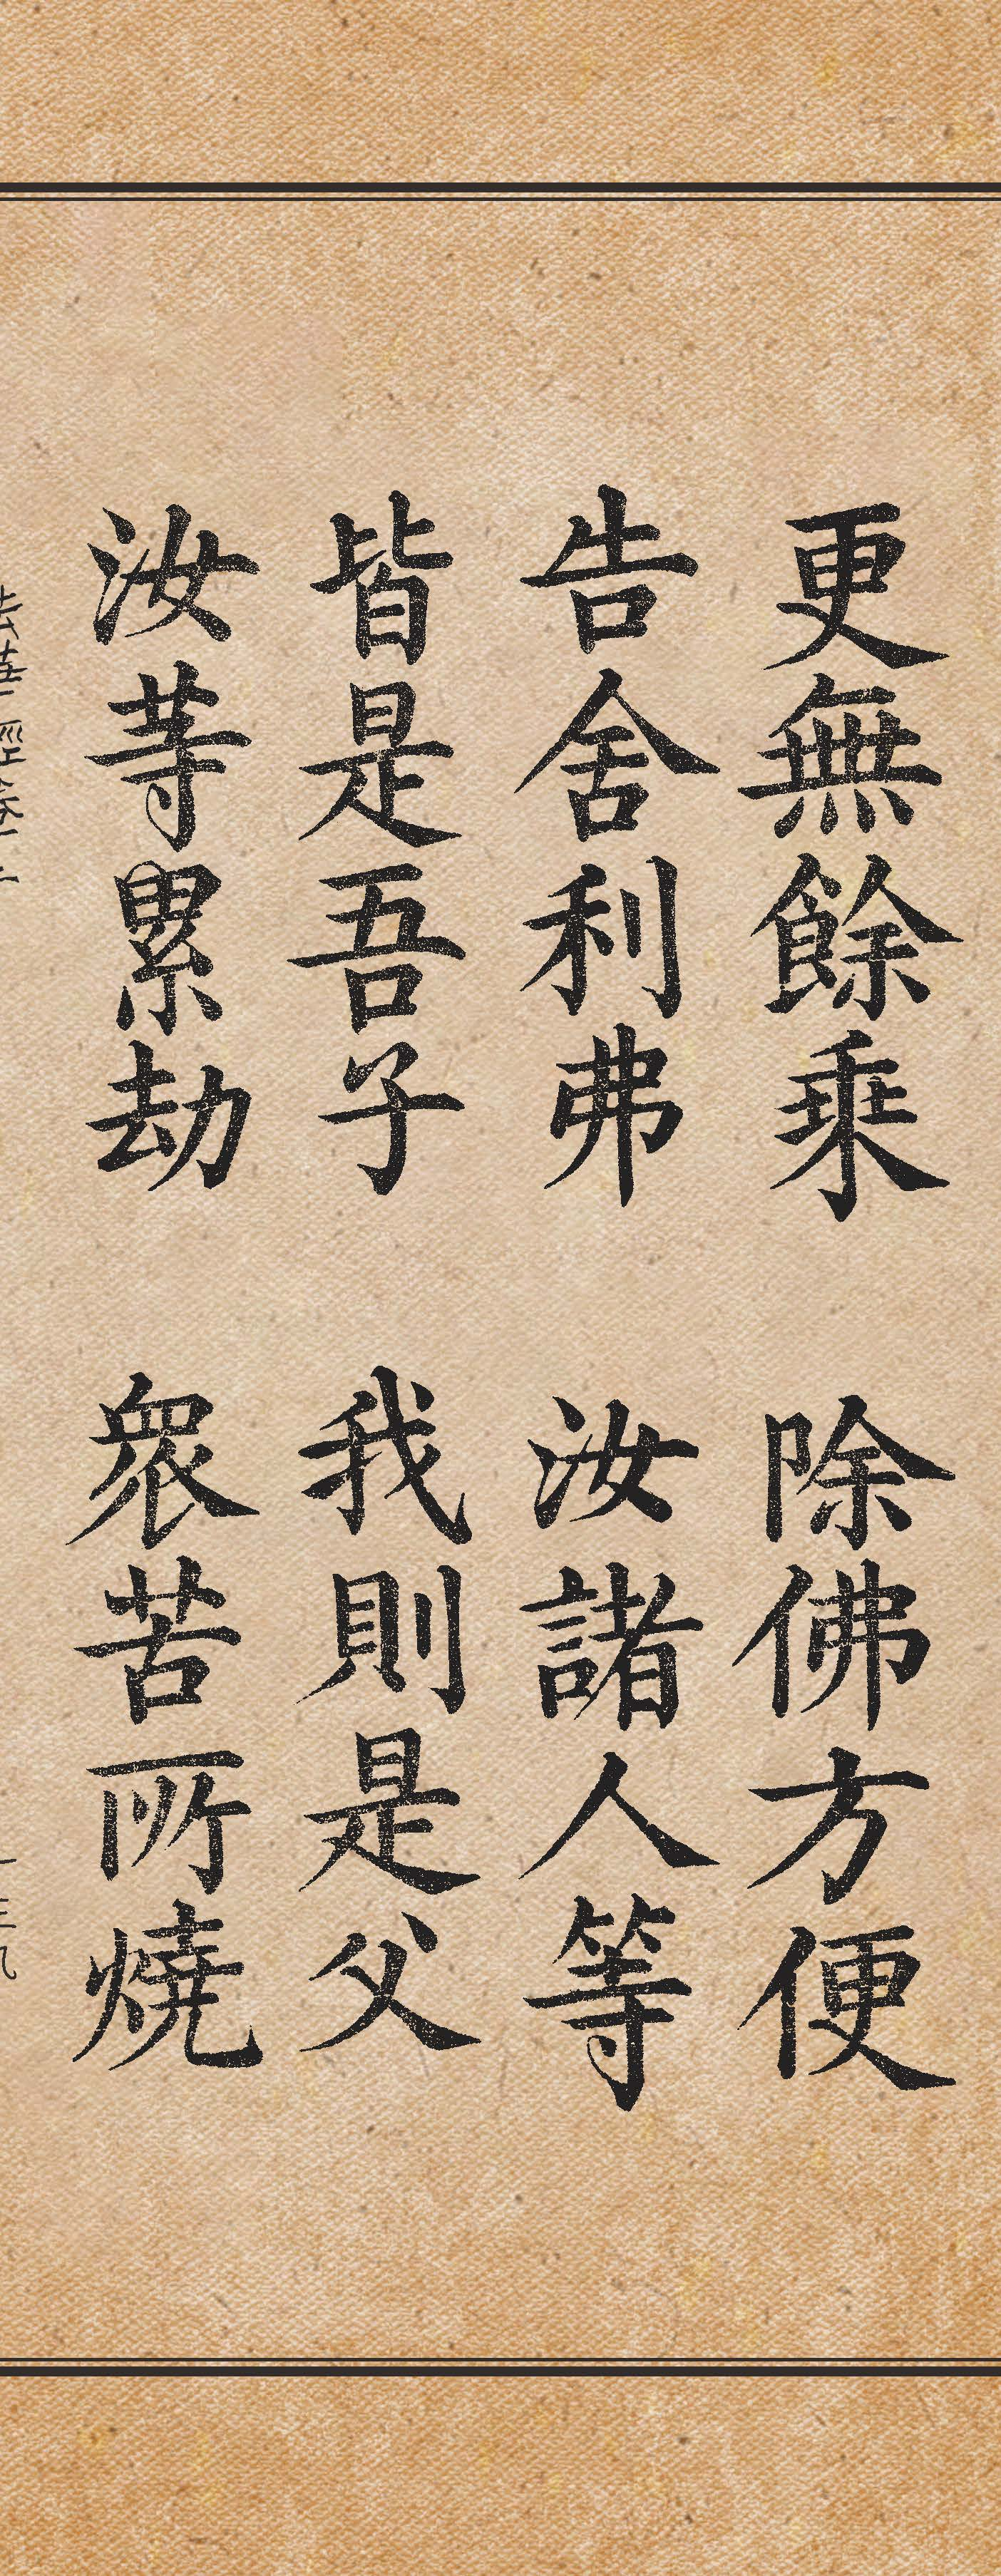 更無餘乘　除佛方便
告舍利弗　汝諸人等
皆是吾子　我則是父
汝等累劫　衆苦所燒